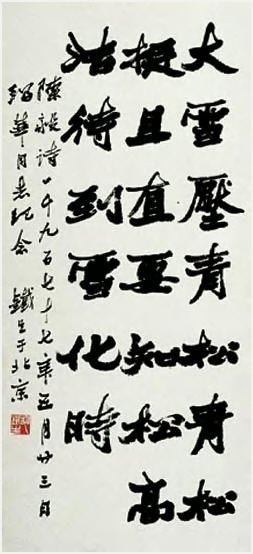 大雪壓青松青松
挺且直要知松高
洁待到雪化時
陳毅詩一千九百七十七年五月廿三日
紹華同志纪念 鐵生于北京